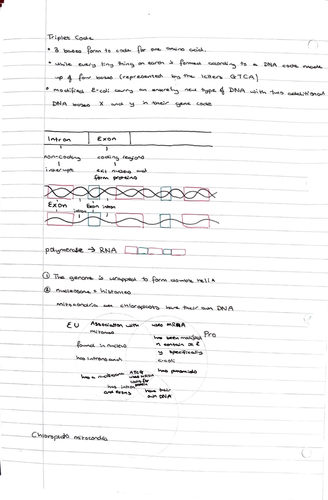 Triplet Code
• 3 bases form to code for one amino acid.
• while every ting thing on earth is formed according to a DNA code made
up of four bases (represented by the letters GTCA)
• modified E-coli carry an entirely new type of DNA with two additional
DNA bases X and y in their gene code
Intron Exon
non-coding coding regions
interrupt exit nucleus and
form proteins
Exon Exon intron
intron
polymerase → RNA
① The genome is wrapped to form double helix
② nucleosome = histones
mitochondria and chloroplasts have their own DNA
EU Association with uses mRNA
Pro
found in nucleus has been modified
n contain X &
has introns and y specifically
e-coli
has a nucleosome has plasmids
have their
own DNA